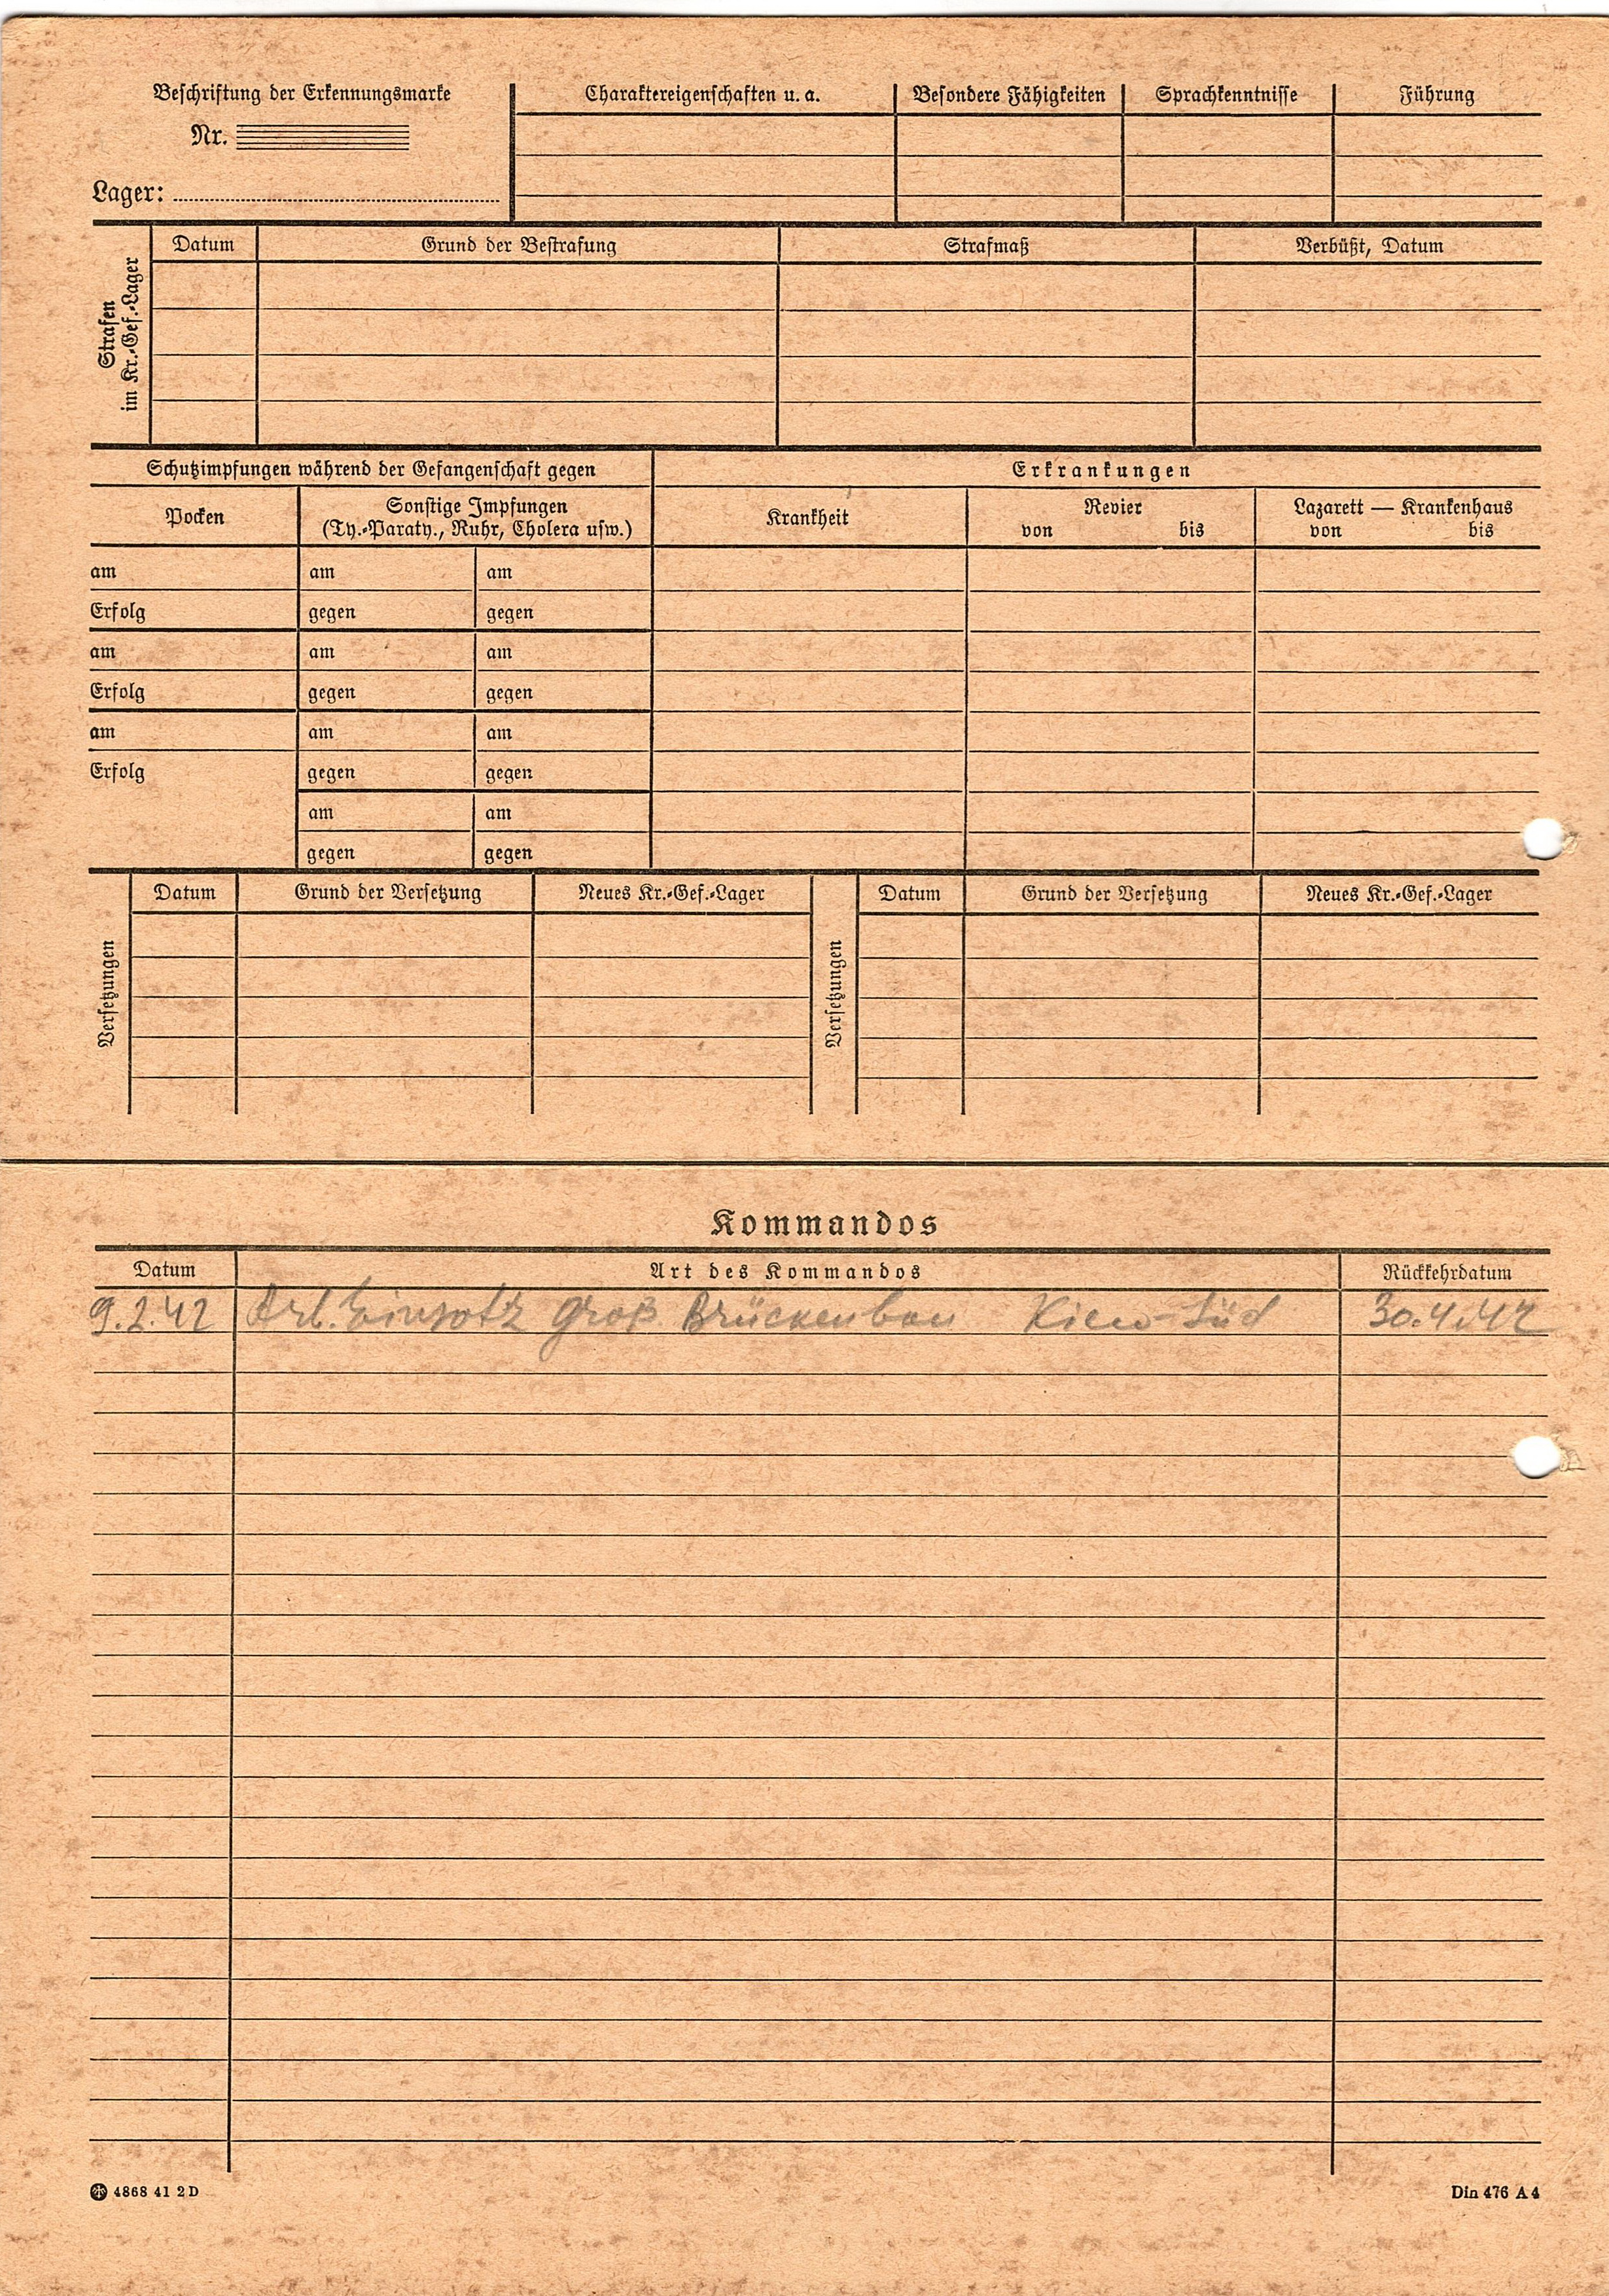 Beschriftung der Erkennungsmarke
Nr.
Lager:
Charaktereigenschaften u. a. Besondere Fähigkeiten Sprachkenntnisse Führung
Strafen
im Kr.-Gef.-Lager
Datum Grund der Bestrafung Strafmaß Verbüßt, Datum
Schutzimpfungen während der Gefangenschaft gegen
Pocken
Sonstige Impfungen
(Ty.-Paraty., Ruhr, Cholera usw.)
am am am
Erfolg gegen gegen
am am am
Erfolg gegen gegen
am am am
Erfolg gegen gegen
am am
gegen gegen
Erkrankungen
Krankheit
Revier
von bis
Lazarett — Krankenhaus
von bis
Versetzungen
Datum Grund der Versetzung Neues Kr.-Gef.-Lager
Versetzungen
Datum Grund der Versetzung Neues Kr.-Gef.-Lager
Kommandos
Datum Art des Kommandos Rückkehrdatum
9.2.42 Arb. Einsatz Groß Brückenbau Kiew-Süd 30.4.42
4868 41 2D
Din 476 A 4